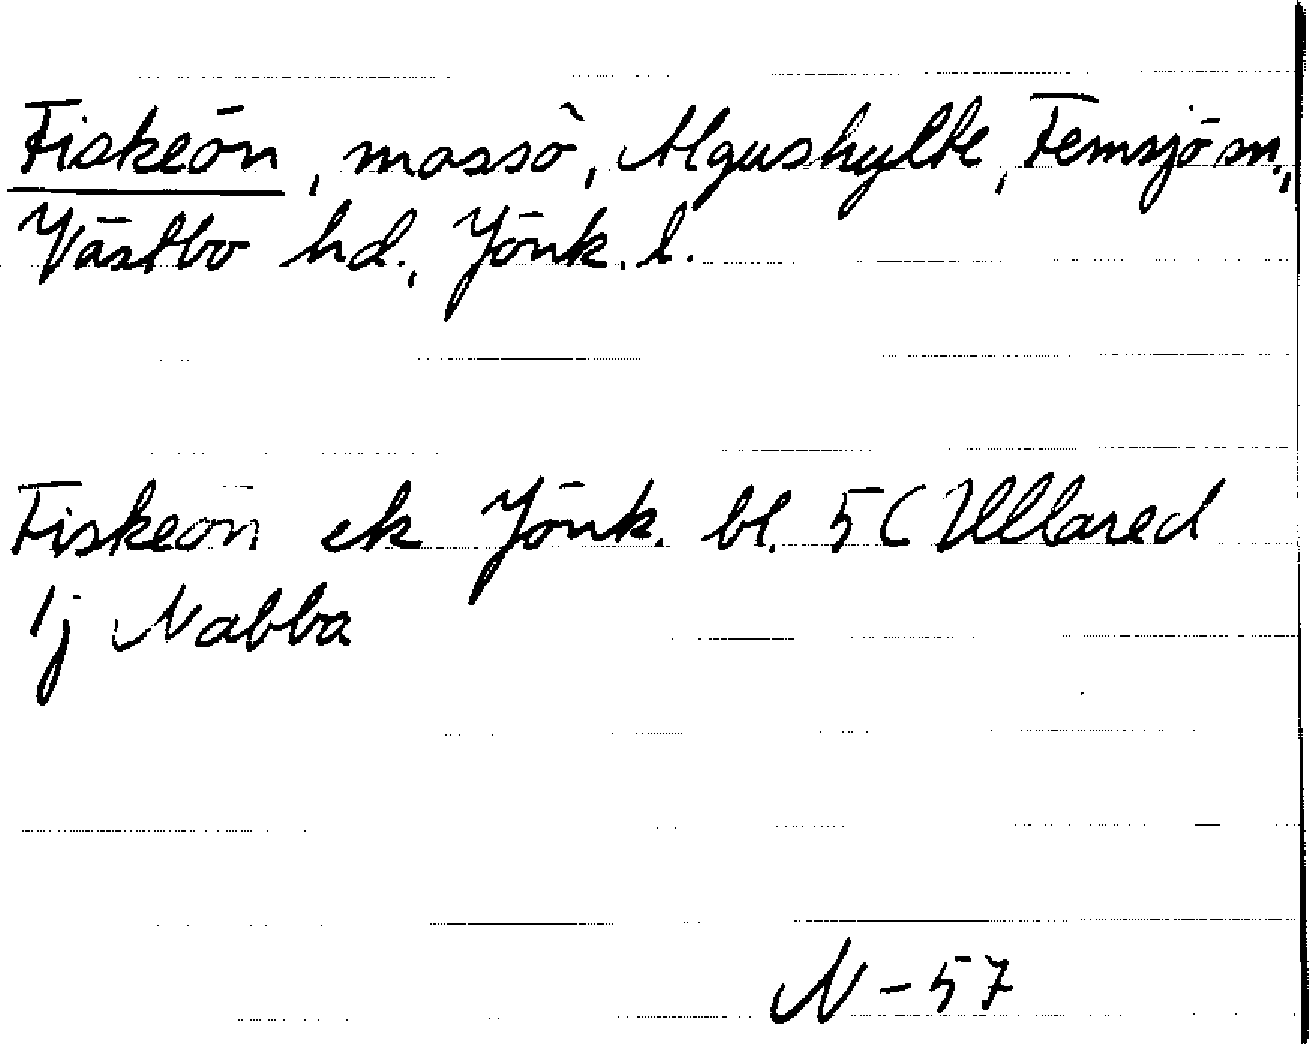 Fiskeön, mossö, Algushylte, Femsjö sn.,
Västbo hd., Jönk. l.
Fiskeön ek Jönk. bl. 5C Ullared
1j Nabba
N-57